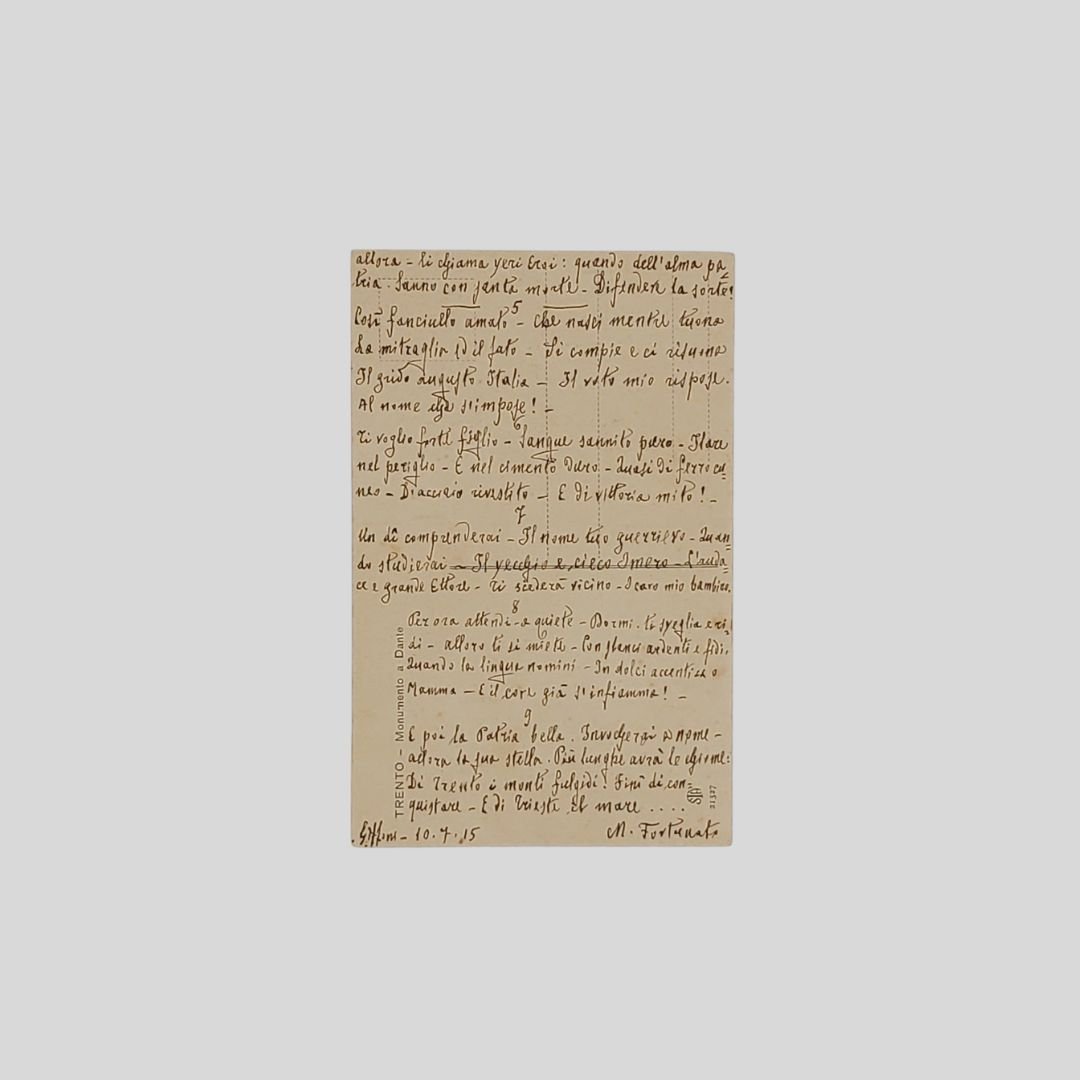 allora - li chiama veri Eroi: quando dell'alma pa
tria. Sanno con santa morte - Difendere la sorte!
5
Così fanciullo amato - che nasci mentre tuona
La mitraglia ed il fato - Si compie e ci risuona
Il grido augusto Italia - Il voto mio rispose.
Al nome che s'impose! -
6
Ti voglio forte figlio - Sangue sannito puro - Stare
nel periglio - E nel cimento duro - Quasi di ferro cu
neo - D'acciaio rivestito - E di vittoria mito! -
7
Un dì comprenderai - Il nome tuo guerriero - Quan=
do studierai - Il vecchio e cieco Omero - L'auda=
ce e grande Ettore - Ti siederà vicino - O caro mio bambino.
8
Per ora attendi a quiete - Dormi. ti sveglia e ri=
di - allora ti si miete - Con slanci ardenti e fidi.
Quando la lingua nomini - In dolci accenti
Mamma - E il core già s'infiamma! -
9
E poi la Patria bella. Invocherai a nome -
allora la sua stella. Più lunghe avrà le chiome:
Di Trento i monti fulgidi! Finì di con=
quistare - E di Trieste il mare ....
10.7.15 M. Fortunato
TRENTO - Monumento a Dante
STA
21327